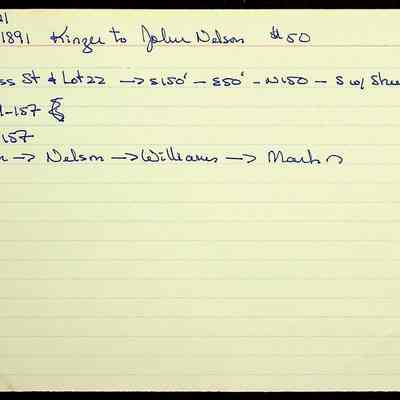 1891 Kinzer to John Nelson $50
ss St & Lot 22 → S150' – E50' – N150 – S w/
-157
157
→ Nelson → Williams →